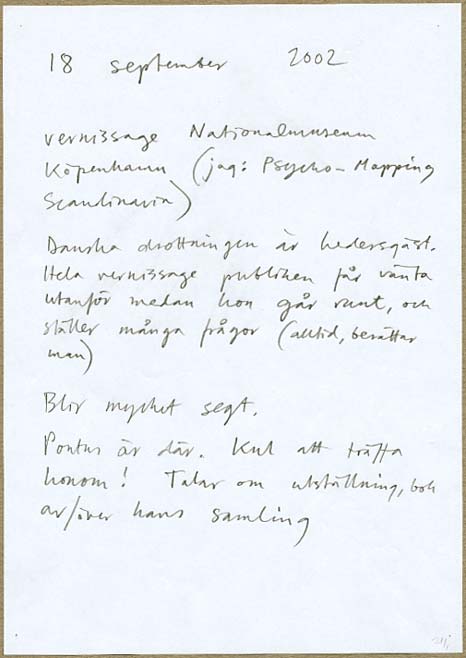 18 september 2002
vernissage Nationalmuseum
Köpenhamn (jag: Psycho-Mapping
Scandinavia)
Danska drottningen är hedersgäst.
Hela vernissage publiken får vänta
utanför medan hon går runt, och
ställer många frågor (alltid, berättar
man)
Blir mycket segt.
Pontus är där. Kul att träffa
honom! Talar om utställning, bok
av/över hans samling